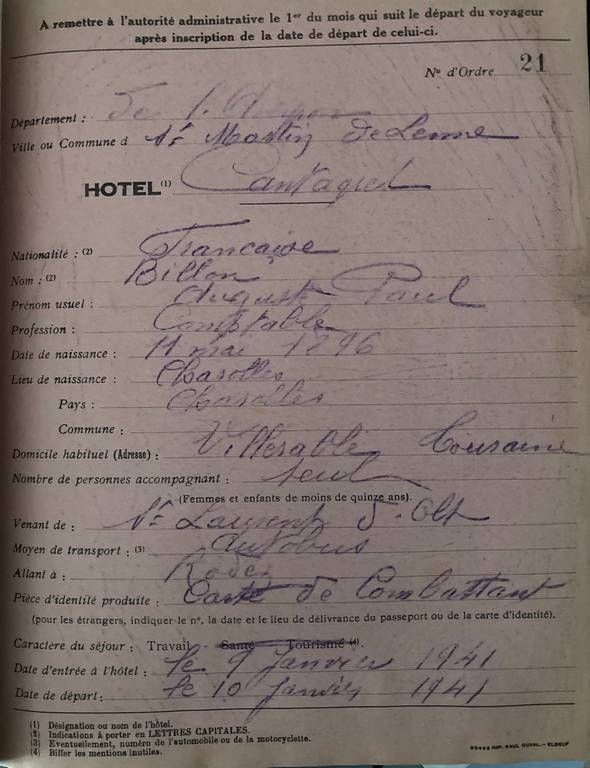 A remettre à l'autorité administrative le 1er du mois qui suit le départ du voyageur
après inscription de la date de départ de celui-ci.
No d'Ordre 21
Département : De l'Aveyron
Ville ou Commune d St Martin De Lenne
HOTEL (1) Cantaguel
Nationalité : (2) Francaise
Nom : (2) Billon
Prénom usuel : Auguste Paul
Profession : Comptable
Date de naissance : 11 mai 1896
Lieu de naissance : Charolles
Pays : Charolles
Commune :
Domicile habituel (Adresse) : Touraine
Nombre de personnes accompagnant : seul
(Femmes et enfants de moins de quinze ans).
Venant de : St Laurent d'Olt
Moyen de transport : (3) autobus
Allant à : Rodez
Pièce d'identité produite : Carte de Combattant
(pour les étrangers, indiquer le n°, la date et le lieu de délivrance du passeport ou de la carte d'identité).
Caractère du séjour : Travail - Santé Tourisme (4).
Date d'entrée à l'hôtel : le 9 Janvier 1941
Date de départ : le 10 Janvier 1941
(1) Désignation ou nom de l'hôtel.
(2) Indications à porter en LETTRES CAPITALES.
(3) Eventuellement, numéro de l'automobile ou de la motocyclette.
(4) Biffer les mentions inutiles.
IMP. PAUL DUVAL. - ELBEUF